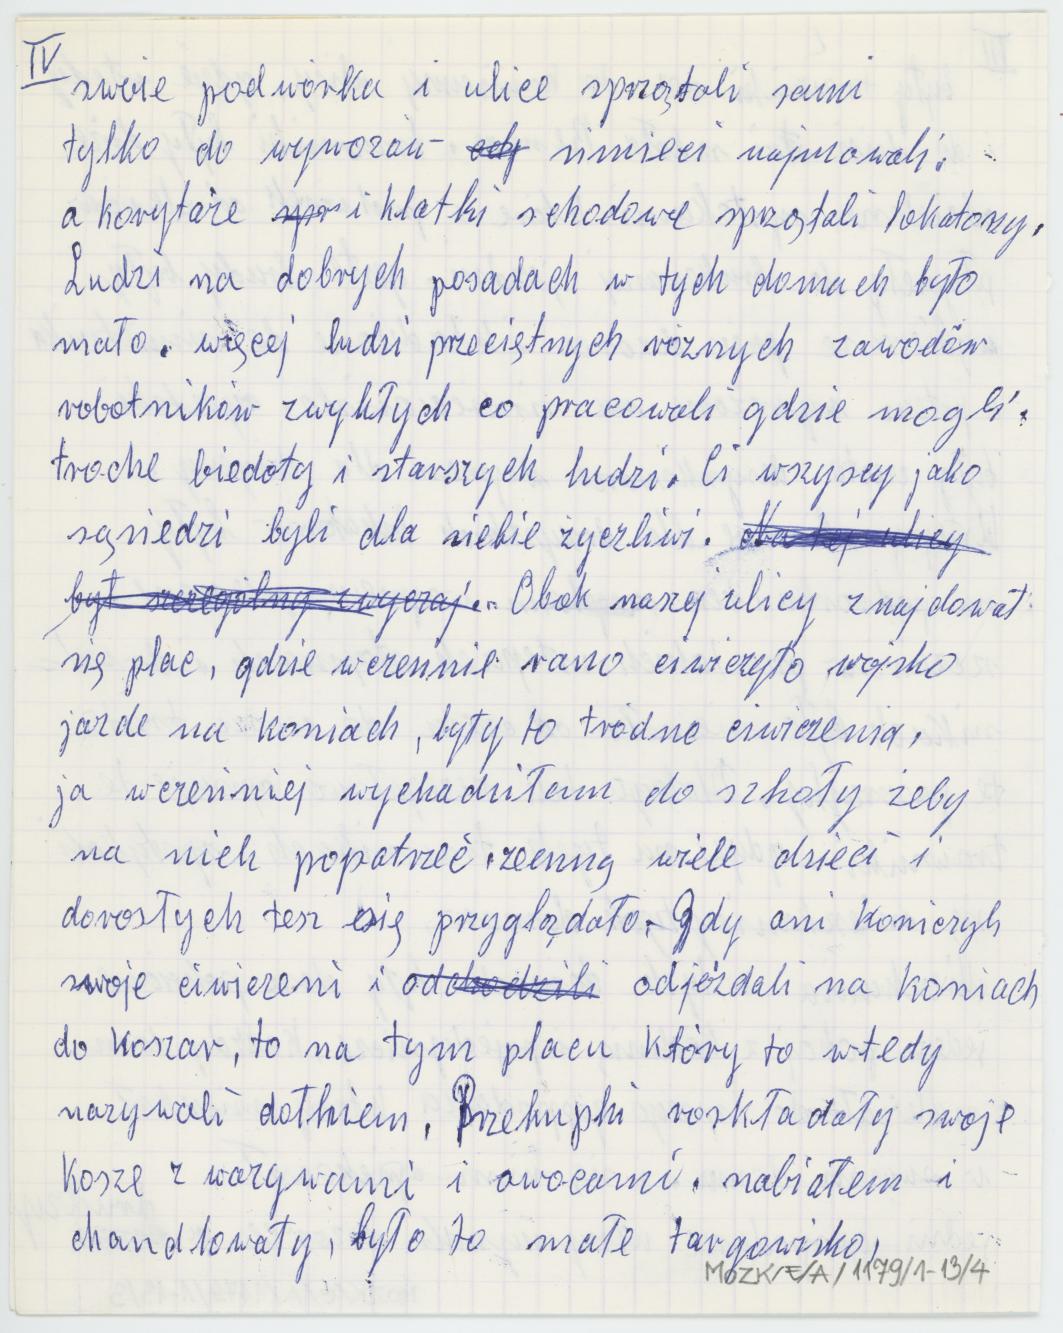 IV
swoie podwórka i ulice sprzątali sami
tylko do wywozáu- śmieci najmowali.
a korytáre i klatki schodowe sprzątali lokatorzy.
Ludzi na dobrych posadach w tych domach było
mało. więcej ludzi przeciętnych róznych zawodów
robotników zwykłych co pracowali gdzie mogli.
troche biedoty i starszych ludzi. Ci wszyscy jako
sąsiedzi byli dla siebie życzliwi. Na tej ulicy
był szczególny zwyczaj.. Obok naszej ulicy znajdował
się plac, gdzie wcześnie rano ćwiczyło wojsko
jazde na koniach, były to tródne ćwiczenia,
ja wcześniej wychodziłam do szkoły żeby
na nich popatrzeć, zemną wiele dzieci i
dorosłych tesz się przyglądało. Gdy oni kończyli
swoje ćwiczeni i odchodzili odjeżdali na koniach
do koszar, to na tym placu który to wtedy
nazywali dołkiem, Przekupki roskładały swoje
kosze z wazywami i owocami. nabiałem i
chandlowały, było to małe targowisko,
MOZK/E/A/1179/1-13/4